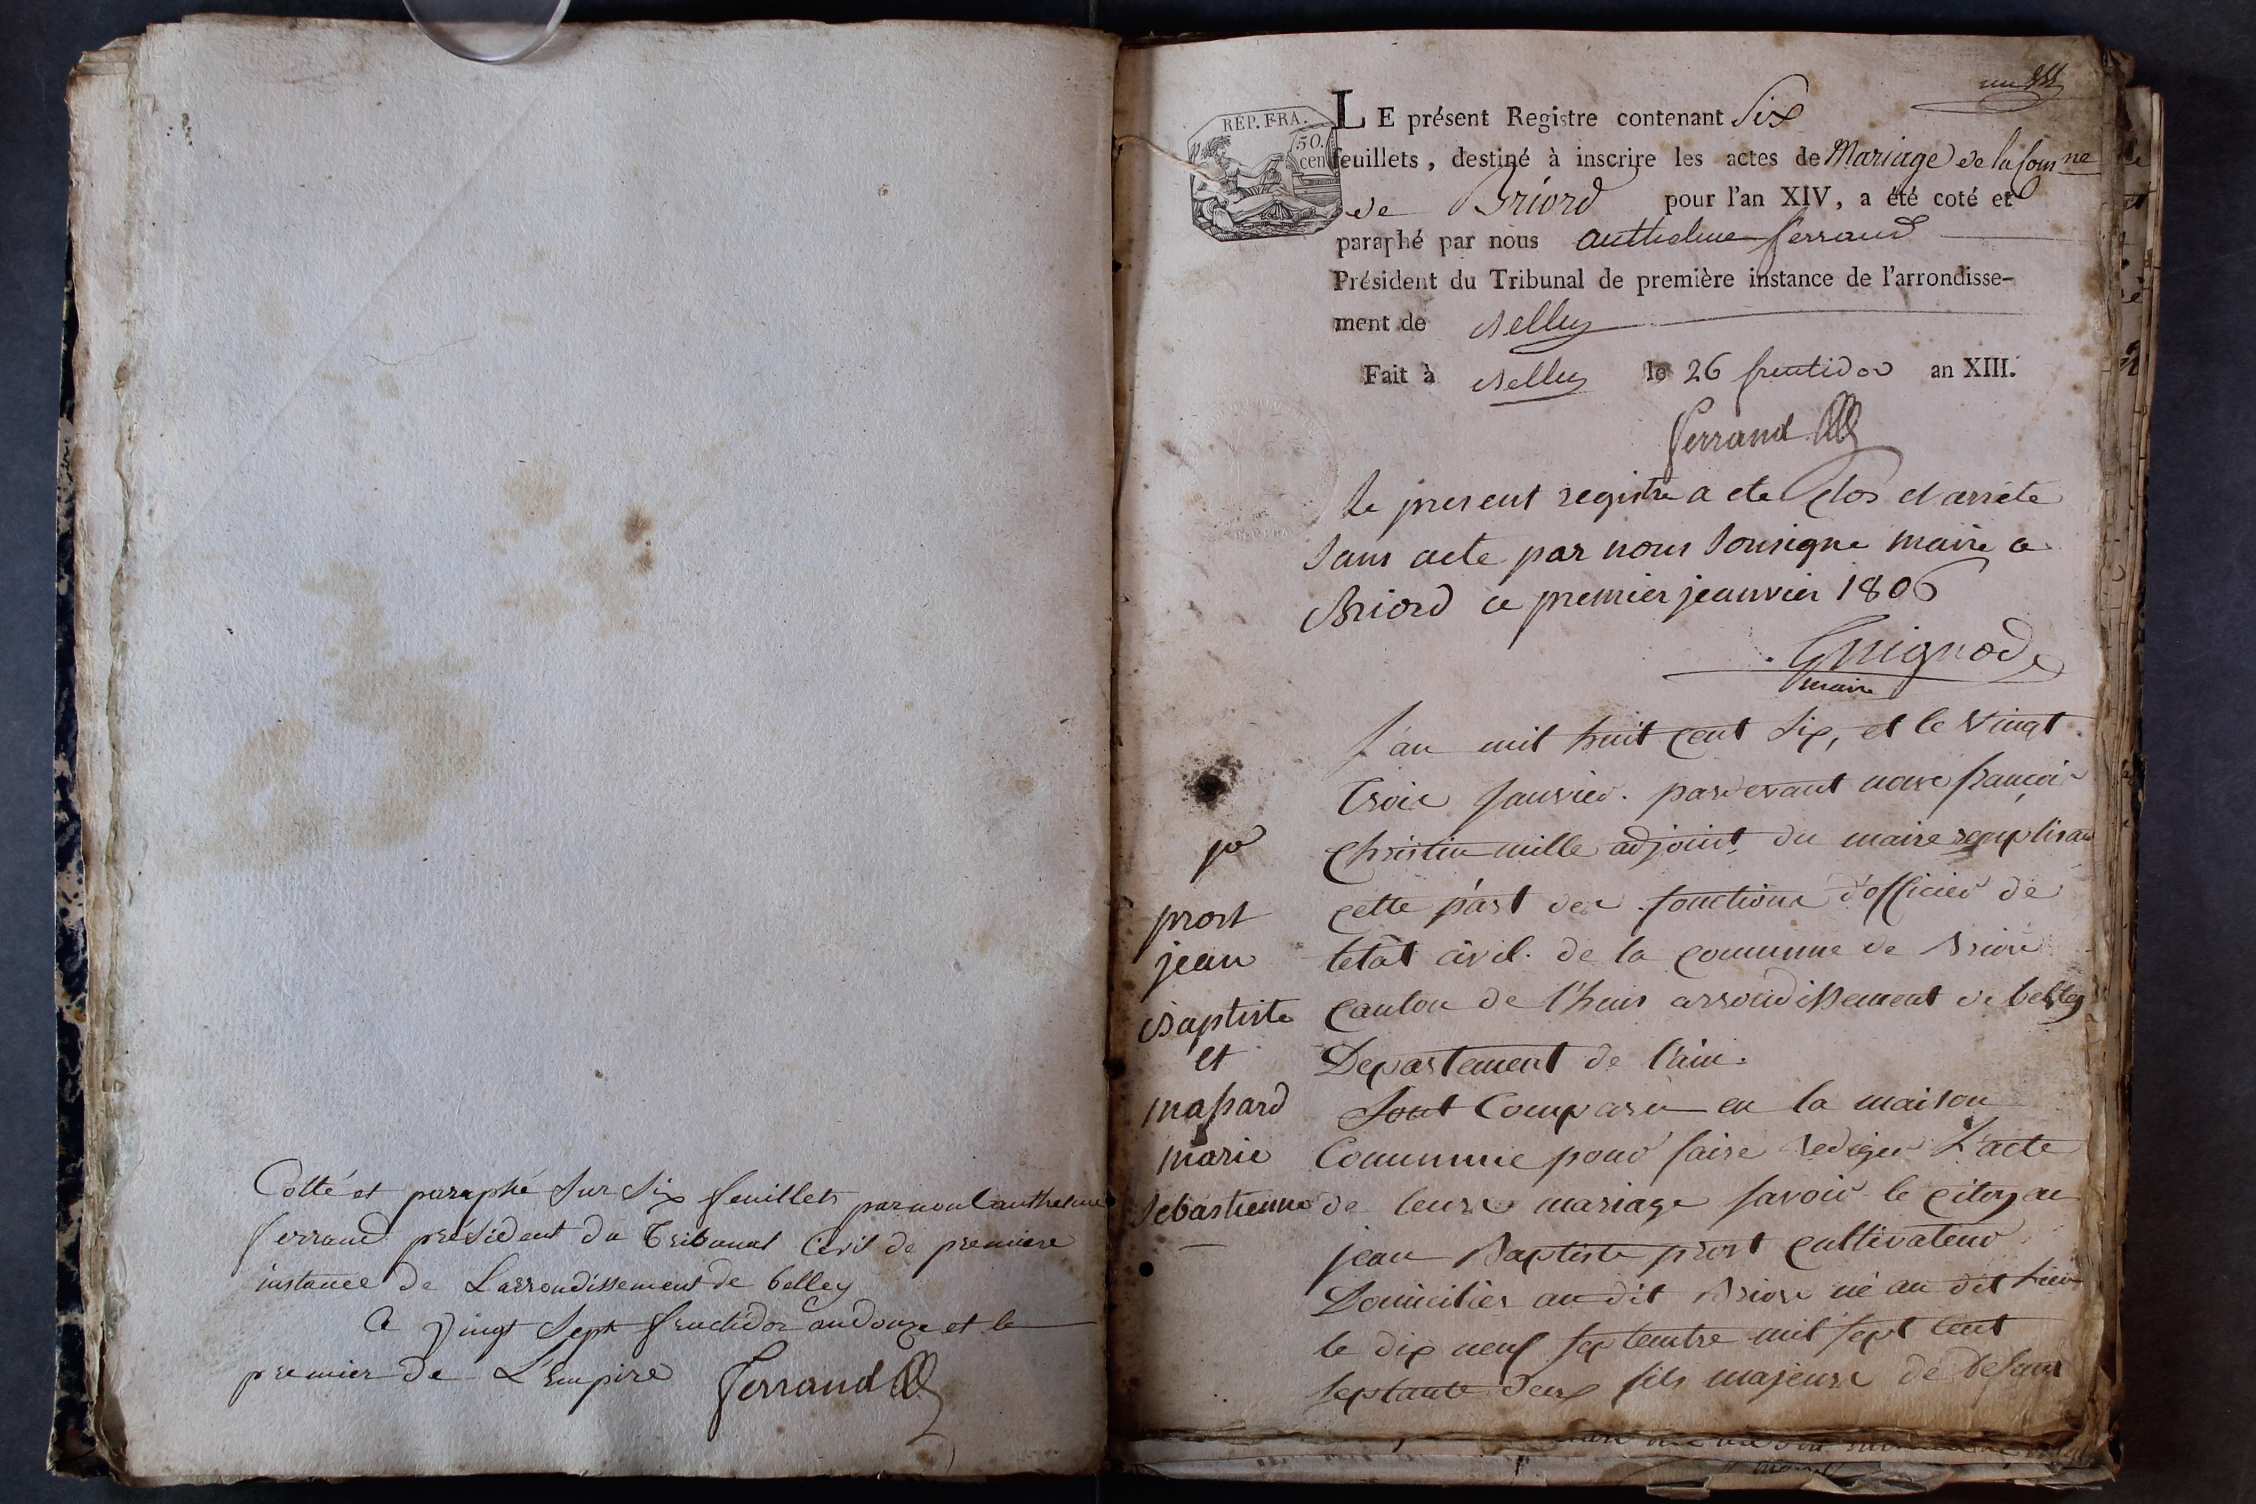 Cotté et paraphé sur six feuillets par nous anthelme
ferrand président du Tribunal Civil de premiere
instance de Larrondissement de belley
Ce vingt sept fructidor an douze et le
premier de L'Empire ferrand
un
REP. FRA.
50.
cen
LE présent Registre contenant Six
feuillets, destiné à inscrire les actes de Mariage de la Comne
de Briord pour l'an XIV, a été coté et
paraphé par nous anthelme ferrand
Président du Tribunal de première instance de l'arrondisse-
ment de Belley
Fait à Belley le 26 fructidor an XIII.
ferrand
Le present registre a ete clos et arrete
sans acte par nous Sousigne maire a
Briord ce premier jeanvier 1806
Guignod
maire
L'an mil huit cent six, et le vingt
trois Janvier. pardevant nous françois
Christin mille adjoint du maire remplisant
cette part des fonctions d'officier de
letât civil. de la commune de Briord
Canton de l'huis arrondissement de belley
Departement de l'ain.
Sont Comparu en la maison
Commune pour faire rediger L'acte
de leurs mariage savoir le citoyen
jean Baptiste prost cultivateur
Domicilier au dit Briord né au dit lieu
le dix neuf septembre mil sept cent
septante deux fils majeurs de defunt
pr
prost
jean
Baptiste
et
massard
marie
sebastienne